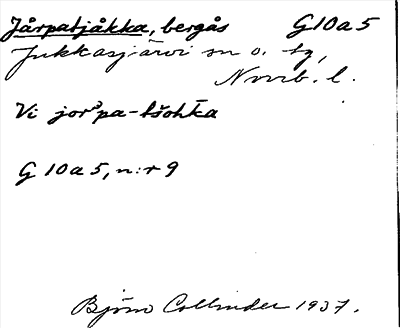 Jårpatjåkka, bergås G10a5
Jukkasjärvi sn o. tg,
Norrb. l.
Vi jorᵊpa-tšohka
G 10a5, n:r 9
Björn Collinder 1937.